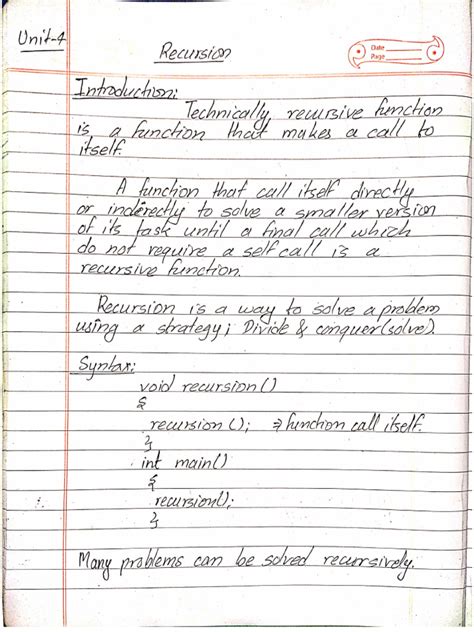 Unit-4
Recursion
Date
Page
Introduction:
Technically, recursive function
is a function that makes a call to
itself.
A function that call itself directly
or inderectly to solve a smaller version
of its task until a final call which
do not require a self call is a
recursive function.
Recursion is a way to solve a problem
using a strategy; Divide & conquer (solve).
Syntax:
void recursion ()
{
recursion (); ⇒ function call itself.
}
int main()
{
recursion();
}
Many problems can be solved recursively.